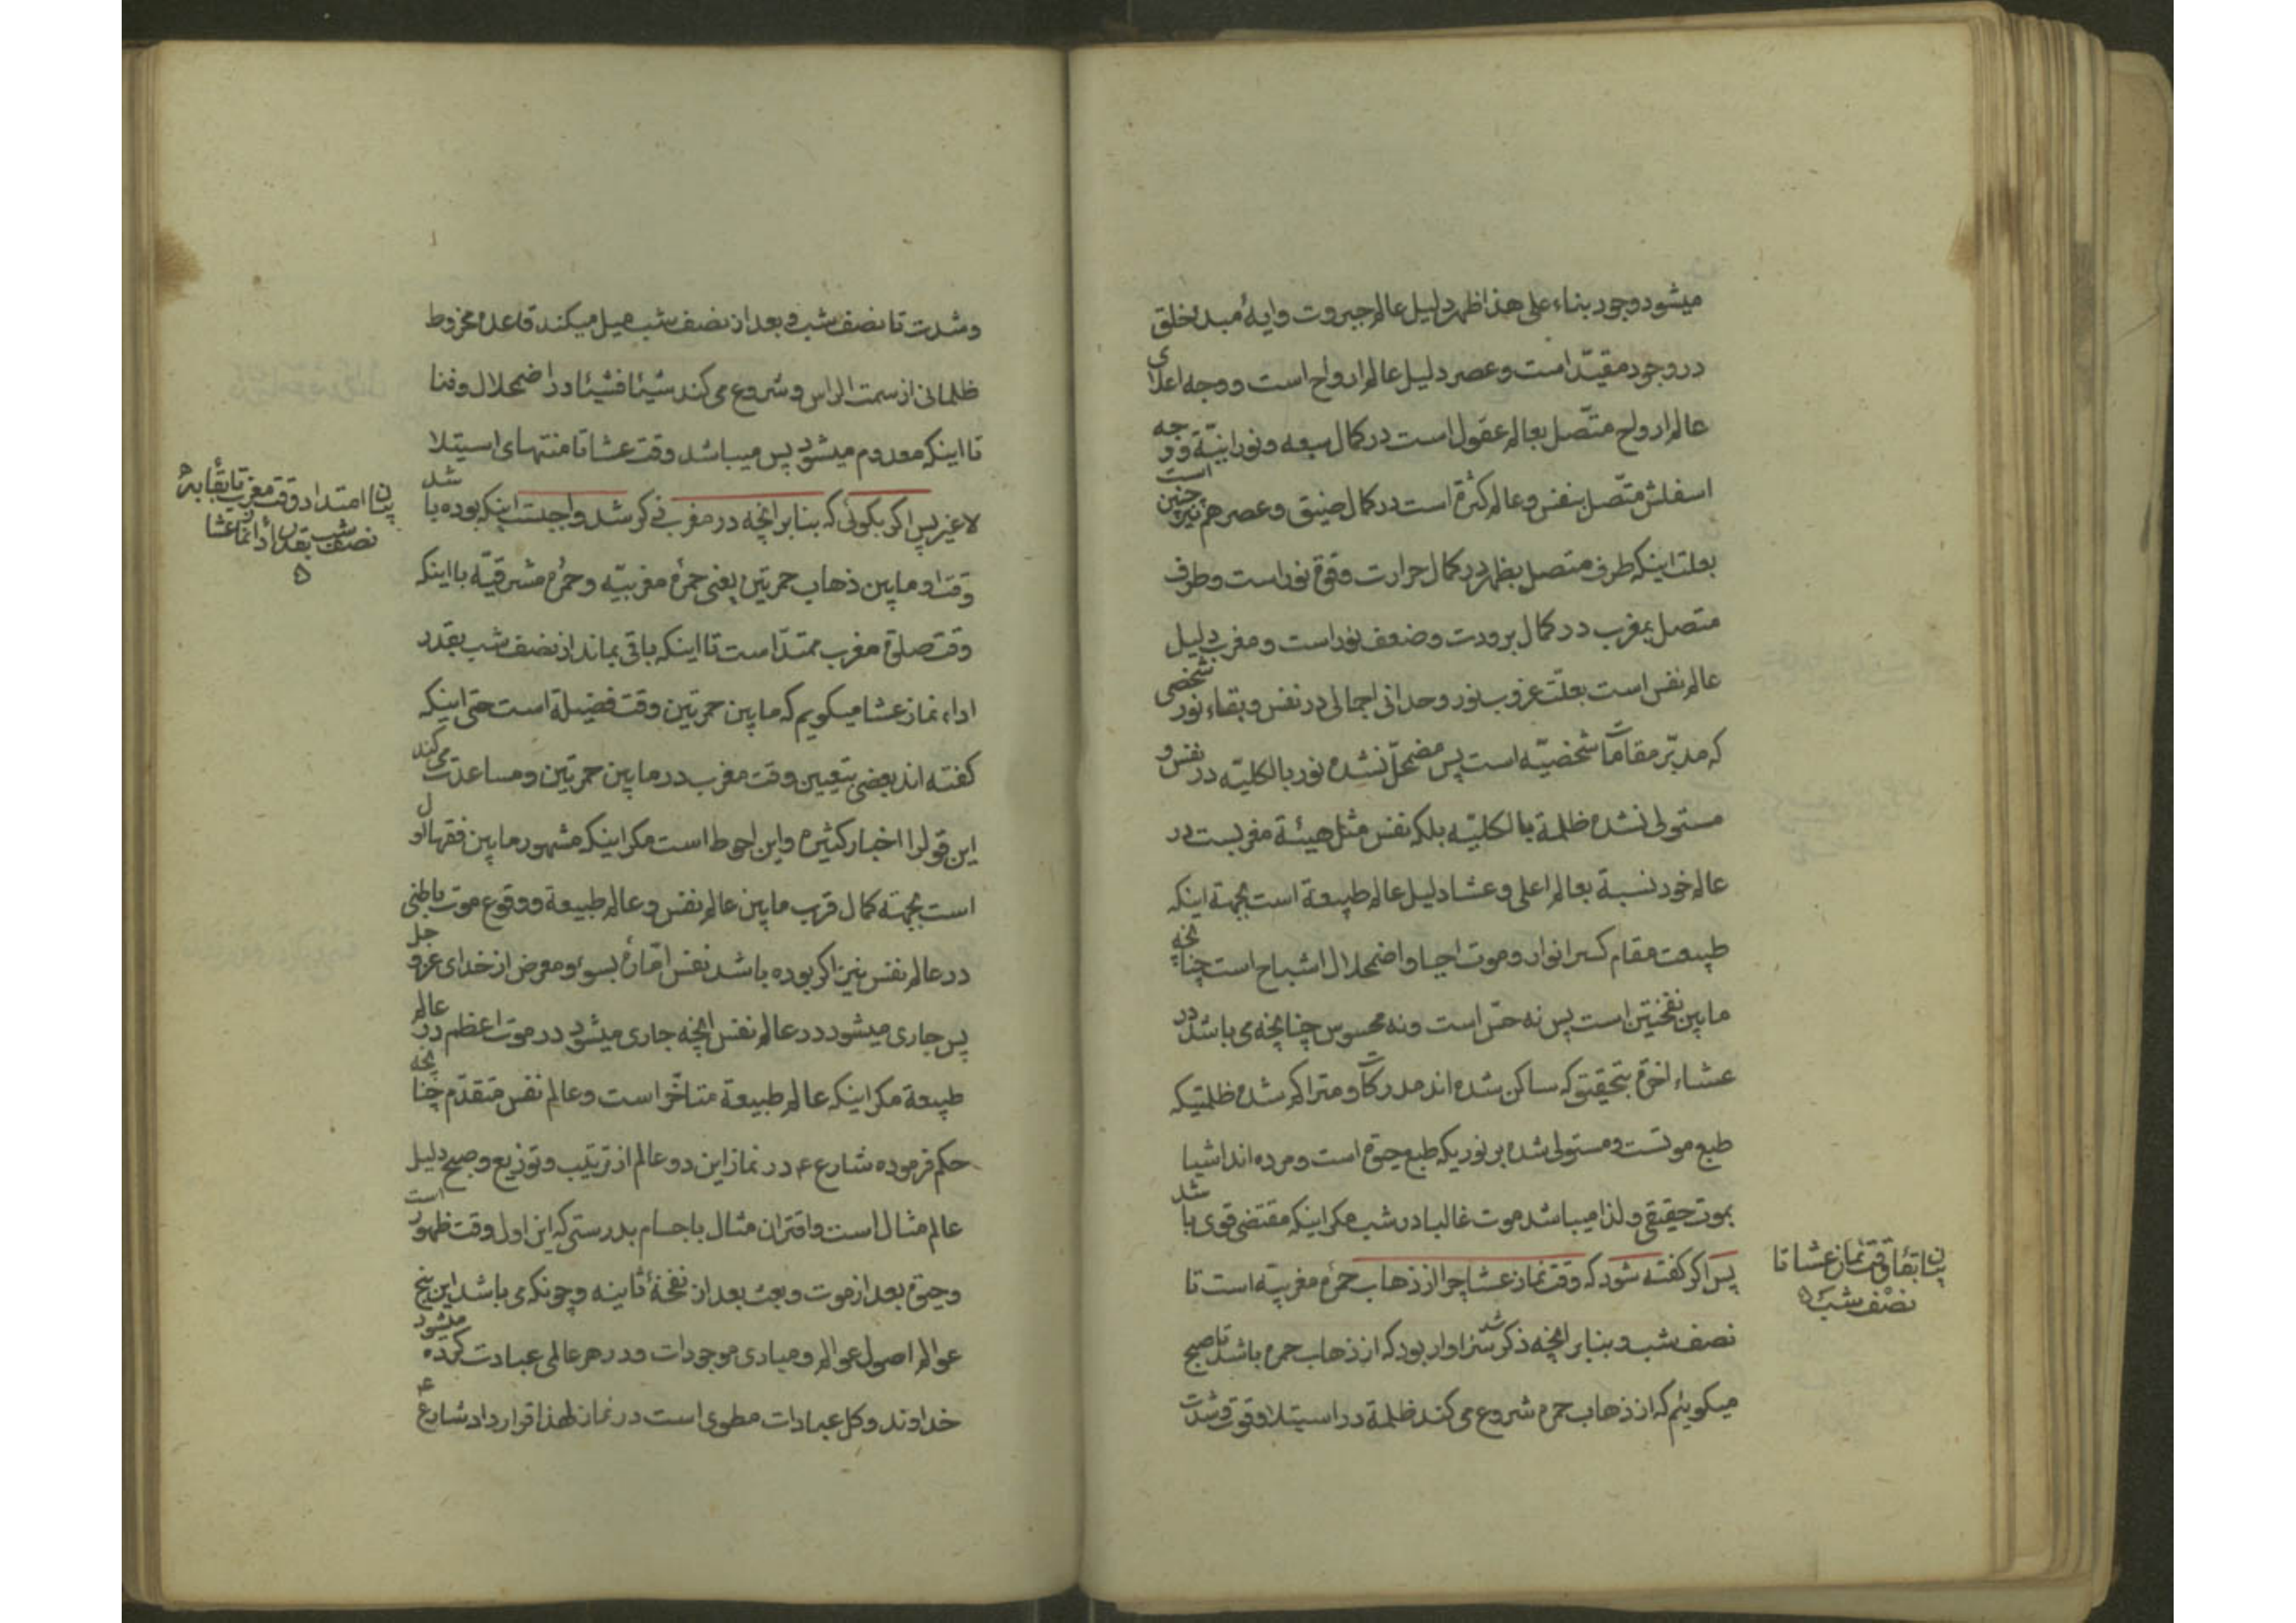 میشود وجود بناء علی هذا ظهر دلیل عالم جبروت و ایه مبدء خلق
در وجود مقید است و عصر دلیل عالم ارواح است و وجه اعلای
عالم ارواح متّصل بعالم عقول است در کمال سعه و نورانیّة و وجه
اسفلش متّصل بنفس و عالم کثرة است در کمال ضیق و عصر هم چنین است
بعلت اینکه طرف متصل بظهر در کمال حرارت و قوة نور است و طرف
متصل بمغرب در کمال برودت و ضعف نور است و مغرب دلیل
عالم نفس است بعلّت غروب نور وحدانی اجمالی در نفس و بقاء نور شخصی
که مدبّر مقامات شخصیّه است پس مضمحلّ نشده نور بالکلیّه در نفس و
مستولی نشده ظلمة بالکلیّه بلکه نفس مثل هیئة مغربست در
عالم خود نسبة بعالم اعلی و عشا دلیل عالم طبیعة است بجهة اینکه
طبیعت مقام کسر انوار و موت احیا و اضمحلال اشباح است چنانچه
مابین نفختین است پس نه حسّ است و نه محسوس چنانچه می باشد در
عشاء اخرة بتحقیق که ساکن شده اند مدرکات و متراکم شده ظلمتیکه
طبع موتست و مستولی شده بر نوریکه طبع حیوة است و مرده اند اشیا
بموت حقیقی ولذا میباشد موت غالبا در شب مکر اینکه مقتضی قوی باشد
پس اکر کفته شود که وقت نماز عشا چرا از ذهاب حمرهٔ مغربیّه است تا
نصف شب و بنابر انچه ذکر شد سزاوار بود که از ذهاب حمره باشد تا صبح
میکوئیم که از ذهاب حمره شروع می کند ظلمة در استیلا و قوة و شدت
بیان ابقاء وقت نماز عشا تا
نصف شب
و شدت تا نصف شب و بعد از نصف شب میل میکند قاعده مخروط
ظلمانی از سمت الراس و شروع می کند شیئا فشیئا در اضمحلال و فنا
تا اینکه معدوم میشود پس میباشد وقت عشا تا منتهای استیلا
لاغیر پس اکر بکوئی که بنابر انچه در مغرب ذکر شد واجبست اینکه بوده باشد
وقت او مابین ذهاب حمرتین یعنی حمرهٔ مغربیّه و حمرهٔ مشرقیّه با اینکه
وقت صلوة مغرب ممتدّ است تا اینکه باقی بماند از نصف شب بقدر
اداء نماز عشا میکویم که مابین حمرتین وقت فضیلة است حتی اینکه
کفته اند بعضی بتعیین وقت مغرب در مابین حمرتین و مساعدت می کند
این قول را اخبار کثیره و این احوط است مکر اینکه مشهور مابین فقها اول
است بجهة کمال قرب مابین عالم نفس و عالم طبیعة و وقوع موت باطنی
در عالم نفس نیز اکر بوده باشد نفس امّارهٔ بسوء و معرض از خدای عز و جل
پس جاری میشود در عالم نفس انچه جاری میشود در موت اعظم در عالم
طبیعة مکر اینکه عالم طبیعة متأخّر است و عالم نفس متقدّم چنانچه
حکم فرموده شارع ع در نماز این دو عالم از ترتیب و توزیع و صبح دلیل
عالم مثال است و اقتران مثال باجسام بدرستی که این اول وقت ظهور است
و حیوة بعد از موت و بعث بعد از نفخهٔ ثانیه و چونکه می باشد این پنج
عوالم اصول عوالم و مبادی موجودات و در هر عالمی عبادت کرده میشود
خداوند و کل عبادات مطوی است در نماز لهذا قرار داد شارع ع
بیان امتداد وقت مغرب تا بقاء
نصف شب بقدر اداء نماز عشا